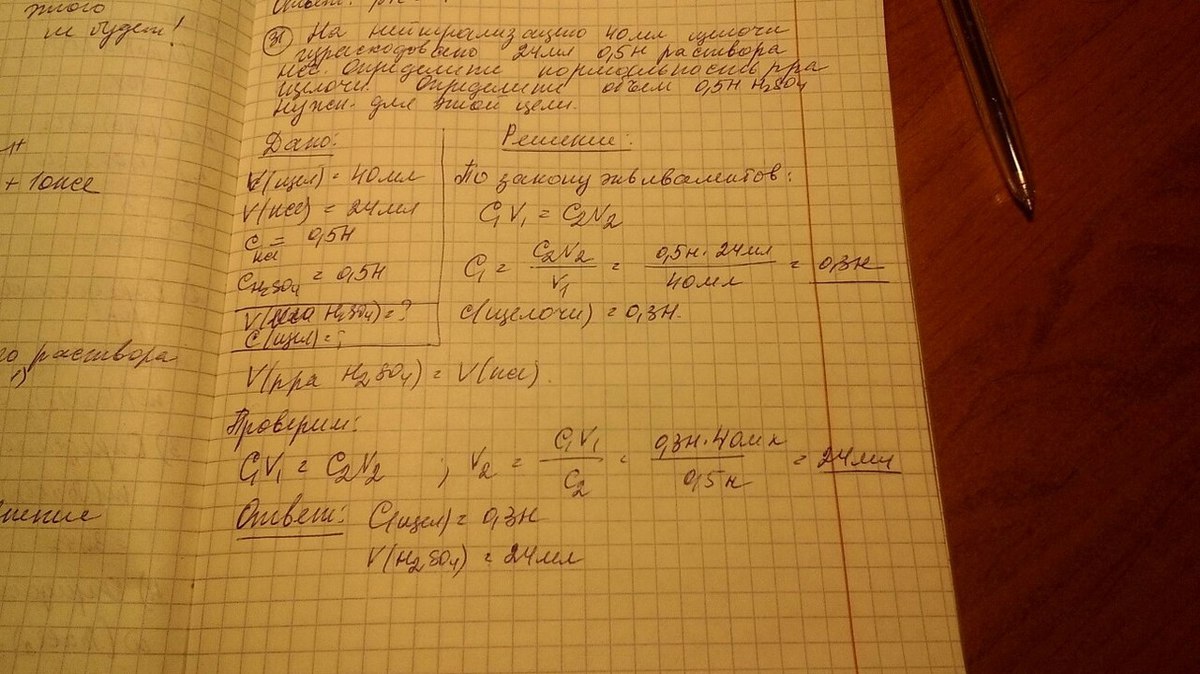 этого
не будет!
+ 10 HCl
го раствора
Ответ: pH =
На нейтрализацию 40 мл щелочи
израсходовано 24 мл 0,5н раствора
HCl. Определите нормальность рра
щелочи. Определите объем 0,5н H2SO4
нужн. для этой цели.
Дано:
V(щел) = 40 мл
V(HCl) = 24 мл
C HCl = 0,5н
C H2SO4 = 0,5н
V(H2SO4) = ?
C(щел) = ?
Решение:
По закону эквивалентов:
C1V1 = C2V2
C1 = C2V2 / V1 = 0,5н · 24мл / 40мл = 0,3н
C(щелочи) = 0,3н.
V(рра H2SO4) = V(HCl).
Проверим:
C1V1 = C2V2 ; V2 = C1V1 / C2 = 0,3н · 40мл / 0,5н = 24мл
Ответ: C(щел) = 0,3н
V(H2SO4) = 24мл